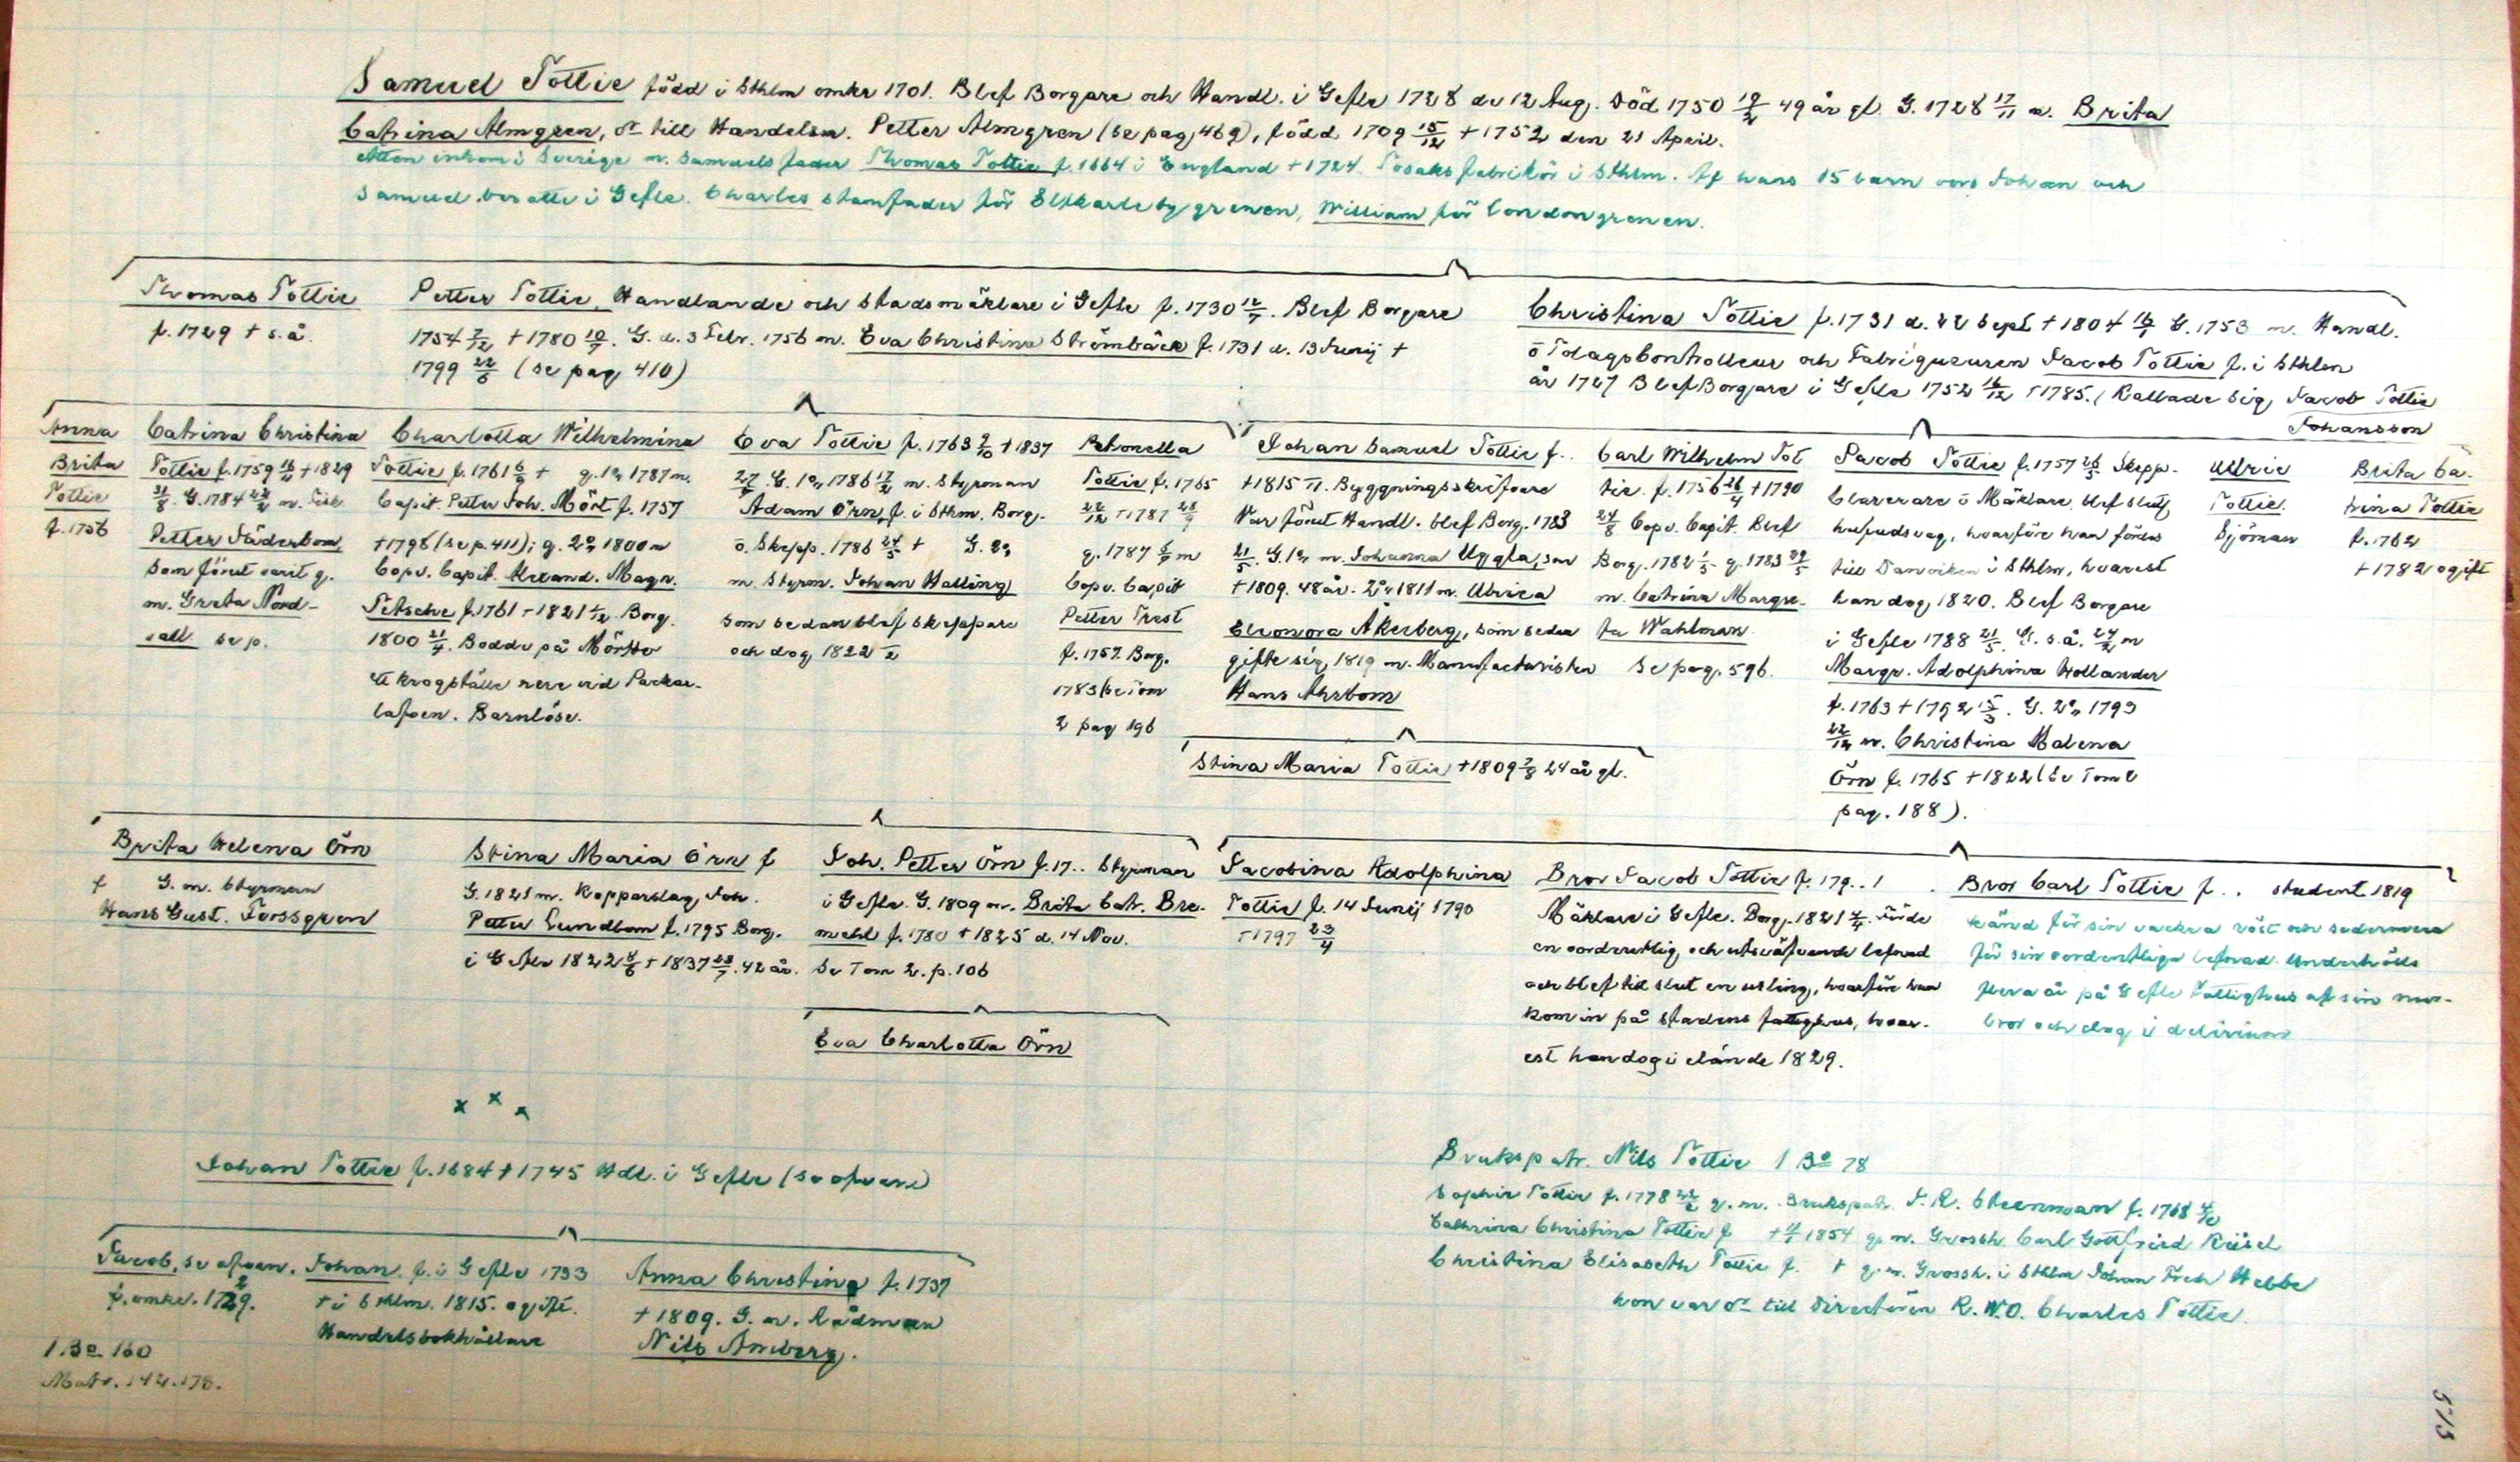 Samuel Tottie född i Sthlm omkr 1701. Blef Borgare och Handl. i Gefle 1728 de 12 Aug. Död 1750 19/2 49 år gl. G. 1728 17/11 m. Brita
Catrina Almgren, dr till Handelsm. Petter Almgren (se pag. 469), född 1709 15/12 + 1752 den 21 April.
Ätten inkom i Sverige m. Samuels fader Thomas Tottie f. 1664 i England + 1724. Tobaksfabrikör i Sthlm. Af hans 15 barn voro Johan och
Samuel bosatte i Gefle. Charles stamfader för Elfkarlebygrenen, William för Londongrenen.
Thomas Tottie
f. 1729 + s.å.
Petter Tottie, Handlande och Stadsmäklare i Gefle f. 1730 12/7. Blef Borgare
1754 7/12 + 1780 19/7. G. d. 3 Febr. 1756 m. Eva Christina Strömbäck f. 1731 d. 13 Junij +
1799 22/6 (se pag 410)
Christina Tottie f. 1731 d. 22 Sept + 1804 16/1 G. 1753 m. Handl.
o Tolagscontrolleur och Fabriqueuren Jacob Tottie f. i Sthlm
år 1727 Blef Borgare i Gefle 1752 16/12 + 1785. (Kallade sig Jacob Tottie
Johansson
Anna
Brita
Tottie
f. 1756
Catrina Christina
Tottie f. 1759 16/2 + 1829
31/8. G. 1784 m. Fisk
Petter Söderbom,
som förut varit g.
m. Greta Nord-
vall se p.
Charlotta Wilhelmina
Tottie f. 1761 6/6 + g. 1o 1787 m.
Capit. Petter Joh. Mört f. 1757
+ 1796 (se p. 411); g. 2o 1800 m
Copv. Capit. Magn.
Petsche f. 1761 + 1821 1/12 Borg.
1800 21/4. Bodde på Mörtbo
ett krogställe nere vid Packar-
lafven. Barnlöse.
Eva Tottie f. 1763 2/10 + 1837
27/5. G. 1o 1786 17/2 m. Styrman
Adam Örn, f. i Sthm. Borg.
o. Skepp. 1786 24/5 + G. 2o
m. Styrm. Johan Halling
som sedan blef skeppare
och dog 1822
Petronella
Tottie f. 1765
22/12 + 1787
g. 1787 m
Copv. Capit
Petter Trast
f. 1757. Borg.
1783 (se Tom
2 pag 196
Johan Samuel Tottie f..
+ 1815. Byggningsskrifvare
Var förut Handl. blef Borg. 1783
21/5. G. 1o m. Johanna Uggla, som
+ 1809. 48 år. 2o 1811 m. Ulrica
Eleonora Åkerberg, som sedan
gifte sig 1819 m. Manufacturisten
Hans Ahrbom
Carl Wilhelm Tot
tie. f. 1756 26/4 + 1790
24/8 Copv. Capit. Blef
Borg. 1782 1/5 g. 1783
m. Catrina Margre-
ta Wahlman.
Se pag. 596.
Jacob Tottie f. 1757 Skepps-
clarerare o Mäklare, blef slutl.
hufvudsvag, hvarföre han fördes
till Danviken i Sthlm, hvarest
han dog 1820. Blef Borgare
i Gefle 1788 21/5. G. s.å. 24/2 m
Margr. Adolphina Hollander
f. 1763 + 1792 15/3. G. 2o 1793
22/12 m. Christina Malena
Örn f. 1765 + 1822 (Se Tom 2
pag. 188).
Ulric
Tottie.
Sjöman
Brita Ca-
trina Tottie
f. 1762
+ 1782 ogift
Stina Maria Tottie + 1809 7/8 24 år gl.
Brita Helena Örn
f G. m. Styrman
Hans Gust. Forssgren
Stina Maria Örn f
G. 1821 m. Kopparslag. Joh.
Petter Lundbom f. 1795 Borg.
i Gefle 1822 8/6 + 1837 23/7. 42 år.
Joh. Petter Örn f. 17.. Styrman
i Gefle. G. 1809 m. Brita Catr. Bre-
mehl f. 1780 + 1825 d. 14 Nov.
Se Tom 2. p. 106
Jacobina Adolphina
Tottie f. 14 Junij 1790
+ 1797 23/4
Bror Jacob Tottie f. 179..
Mäklare i Gefle. Borg. 1821. Förde
en oordentlig och utsväfvande lefnad
och blef till slut en usling, hvarföre han
kom in på stadens fattighus, hvar-
est han dog i elände 1829.
Bror Carl Tottie f.. student 1819
känd för sin vackra röst och sedermera
för sin oordentliga lefnad. Underhölls
flera år på Gefle Fattighus af sin mor-
bror och dog i delirium
Eva Charlotta Örn
x x x
Johan Tottie f. 1684 + 1745 Hdl. i Gefle (se ofvan)
Jacob, se ofvan.
f. omkr. 1729.
Johan. f. i Gefle 1733
+ i Sthlm. 1815. ogift.
Handelsbokhållare
Anna Christina f. 1737
+ 1809. G. m. Rådman
Nils Amberg.
1 Bo 160
Matr. 142.178.
Brukspatr. Nils Tottie 1 Bo 78
Sophie Tottie f. 1778 g. m. Brukspatr. J. R. Steenman f. 1768
Cathrina Christina Tottie f + 1854 g. m. Grossh. Carl Gottfried Küsel
Christina Elisabeth Tottie f. + g. m. Grossh. i Sthlm Johan Fredr Hebbe
hon var dr till Directören R. W. O. Charles Tottie.
573